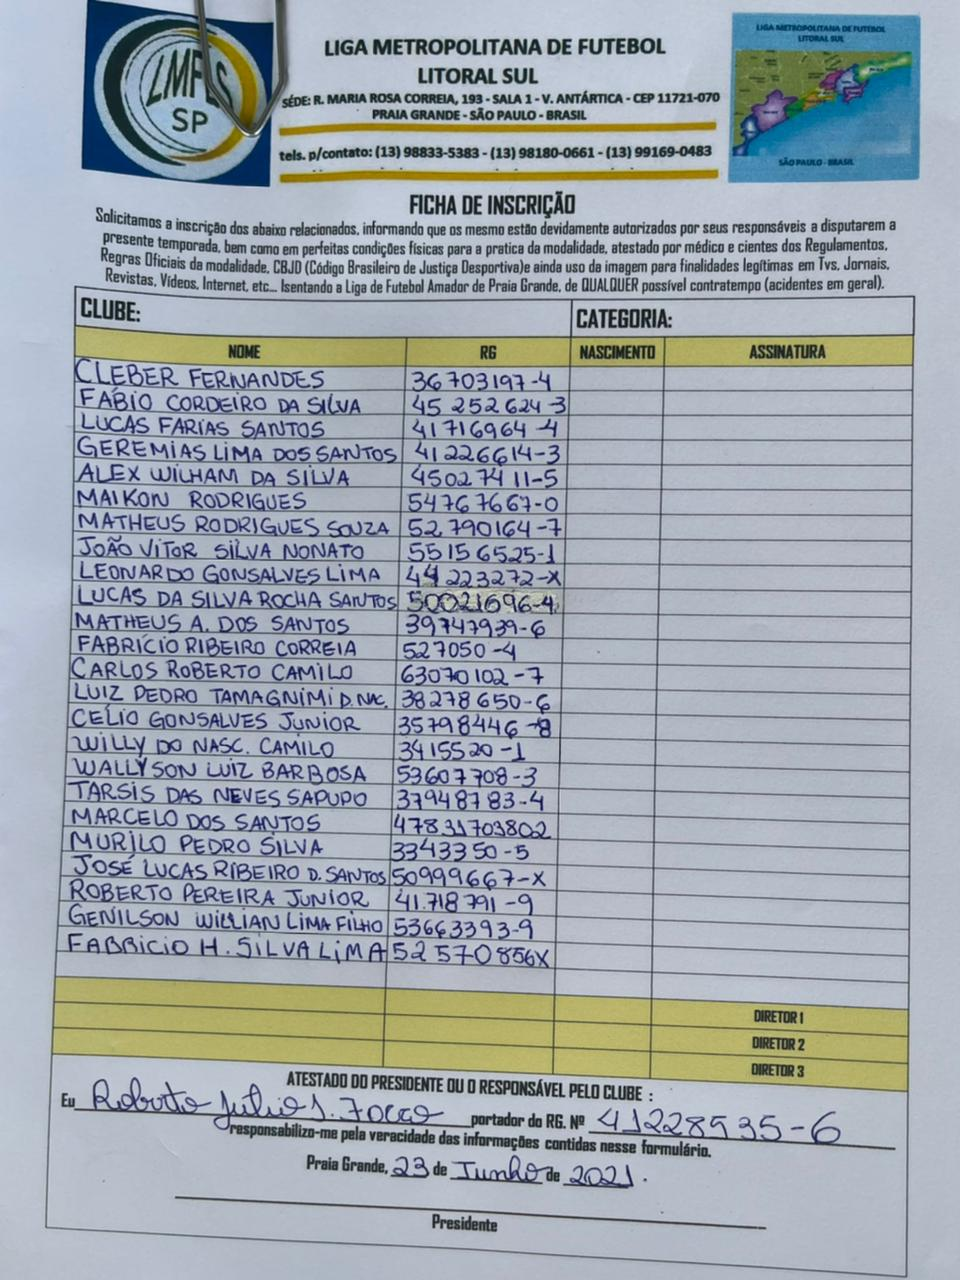 LMFLS
SP
LIGA METROPOLITANA DE FUTEBOL
LITORAL SUL
SÉDE: R. MARIA ROSA CORREIA, 193 - SALA 1 - V. ANTÁRTICA - CEP 11721-070
PRAIA GRANDE - SÃO PAULO - BRASIL
tels. p/contato: (13) 98833-5383 - (13) 98180-0661 - (13) 99169-0483
LIGA METROPOLITANA DE FUTEBOL
LITORAL SUL
SÃO PAULO - BRASIL
FICHA DE INSCRIÇÃO
Solicitamos a inscrição dos abaixo relacionados, informando que os mesmo estão devidamente autorizados por seus responsáveis a disputarem a
presente temporada, bem como em perfeitas condições físicas para a pratica da modalidade, atestado por médico e cientes dos Regulamentos,
Regras Oficiais da modalidade, CBJD (Código Brasileiro de Justiça Desportiva)e ainda uso da imagem para finalidades legítimas em Tvs, Jornais,
Revistas, Vídeos, Internet, etc... Isentando a Liga de Futebol Amador de Praia Grande, de QUALQUER possível contratempo (acidentes em geral).
CLUBE: CATEGORIA:
NOME RG NASCIMENTO ASSINATURA
CLEBER FERNANDES 36703197-4
FÁBIO CORDEIRO DA SILVA 45 252 624-3
LUCAS FARIAS SANTOS 41716964-4
GEREMIAS LIMA DOS SANTOS 41226614-3
ALEX WILHAM DA SILVA 45027411-5
MAIKON RODRIGUES 54767667-0
MATHEUS RODRIGUES SOUZA 52.790164-7
JOÃO VITOR SILVA NONATO 55156525-1
LEONARDO GONSALVES LIMA 44223272-X
LUCAS DA SILVA ROCHA SANTOS 50021696-4
MATHEUS A. DOS SANTOS 39747939-6
FABRÍCIO RIBEIRO CORREIA 527050-4
CARLOS ROBERTO CAMILO 63070102-7
LUIZ PEDRO TAMAGNIMI D. NAC. 38278650-6
CÉLIO GONSALVES JUNIOR 35798446-8
WILLY DO NASC. CAMILO 3415520-1
WALLYSON LUIZ BARBOSA 53607708-3
TARSIS DAS NEVES SAPUPO 37948783-4
MARCELO DOS SANTOS 47831703802
MURILO PEDRO SILVA 3343350-5
JOSÉ LUCAS RIBEIRO D. SANTOS 50999667-X
ROBERTO PEREIRA JUNIOR 41.718791-9
GENILSON WILLIAN LIMA FILHO 53663393-9
FABRICIO H. SILVA LIMA 52 570856X
DIRETOR 1
DIRETOR 2
DIRETOR 3
ATESTADO DO PRESIDENTE OU O RESPONSÁVEL PELO CLUBE :
Eu Roberto Julio portador do RG. Nº 41228535-6
responsabilizo-me pela veracidade das informações contidas nesse formulário.
Praia Grande, 23 de Junho de 2021.
Presidente